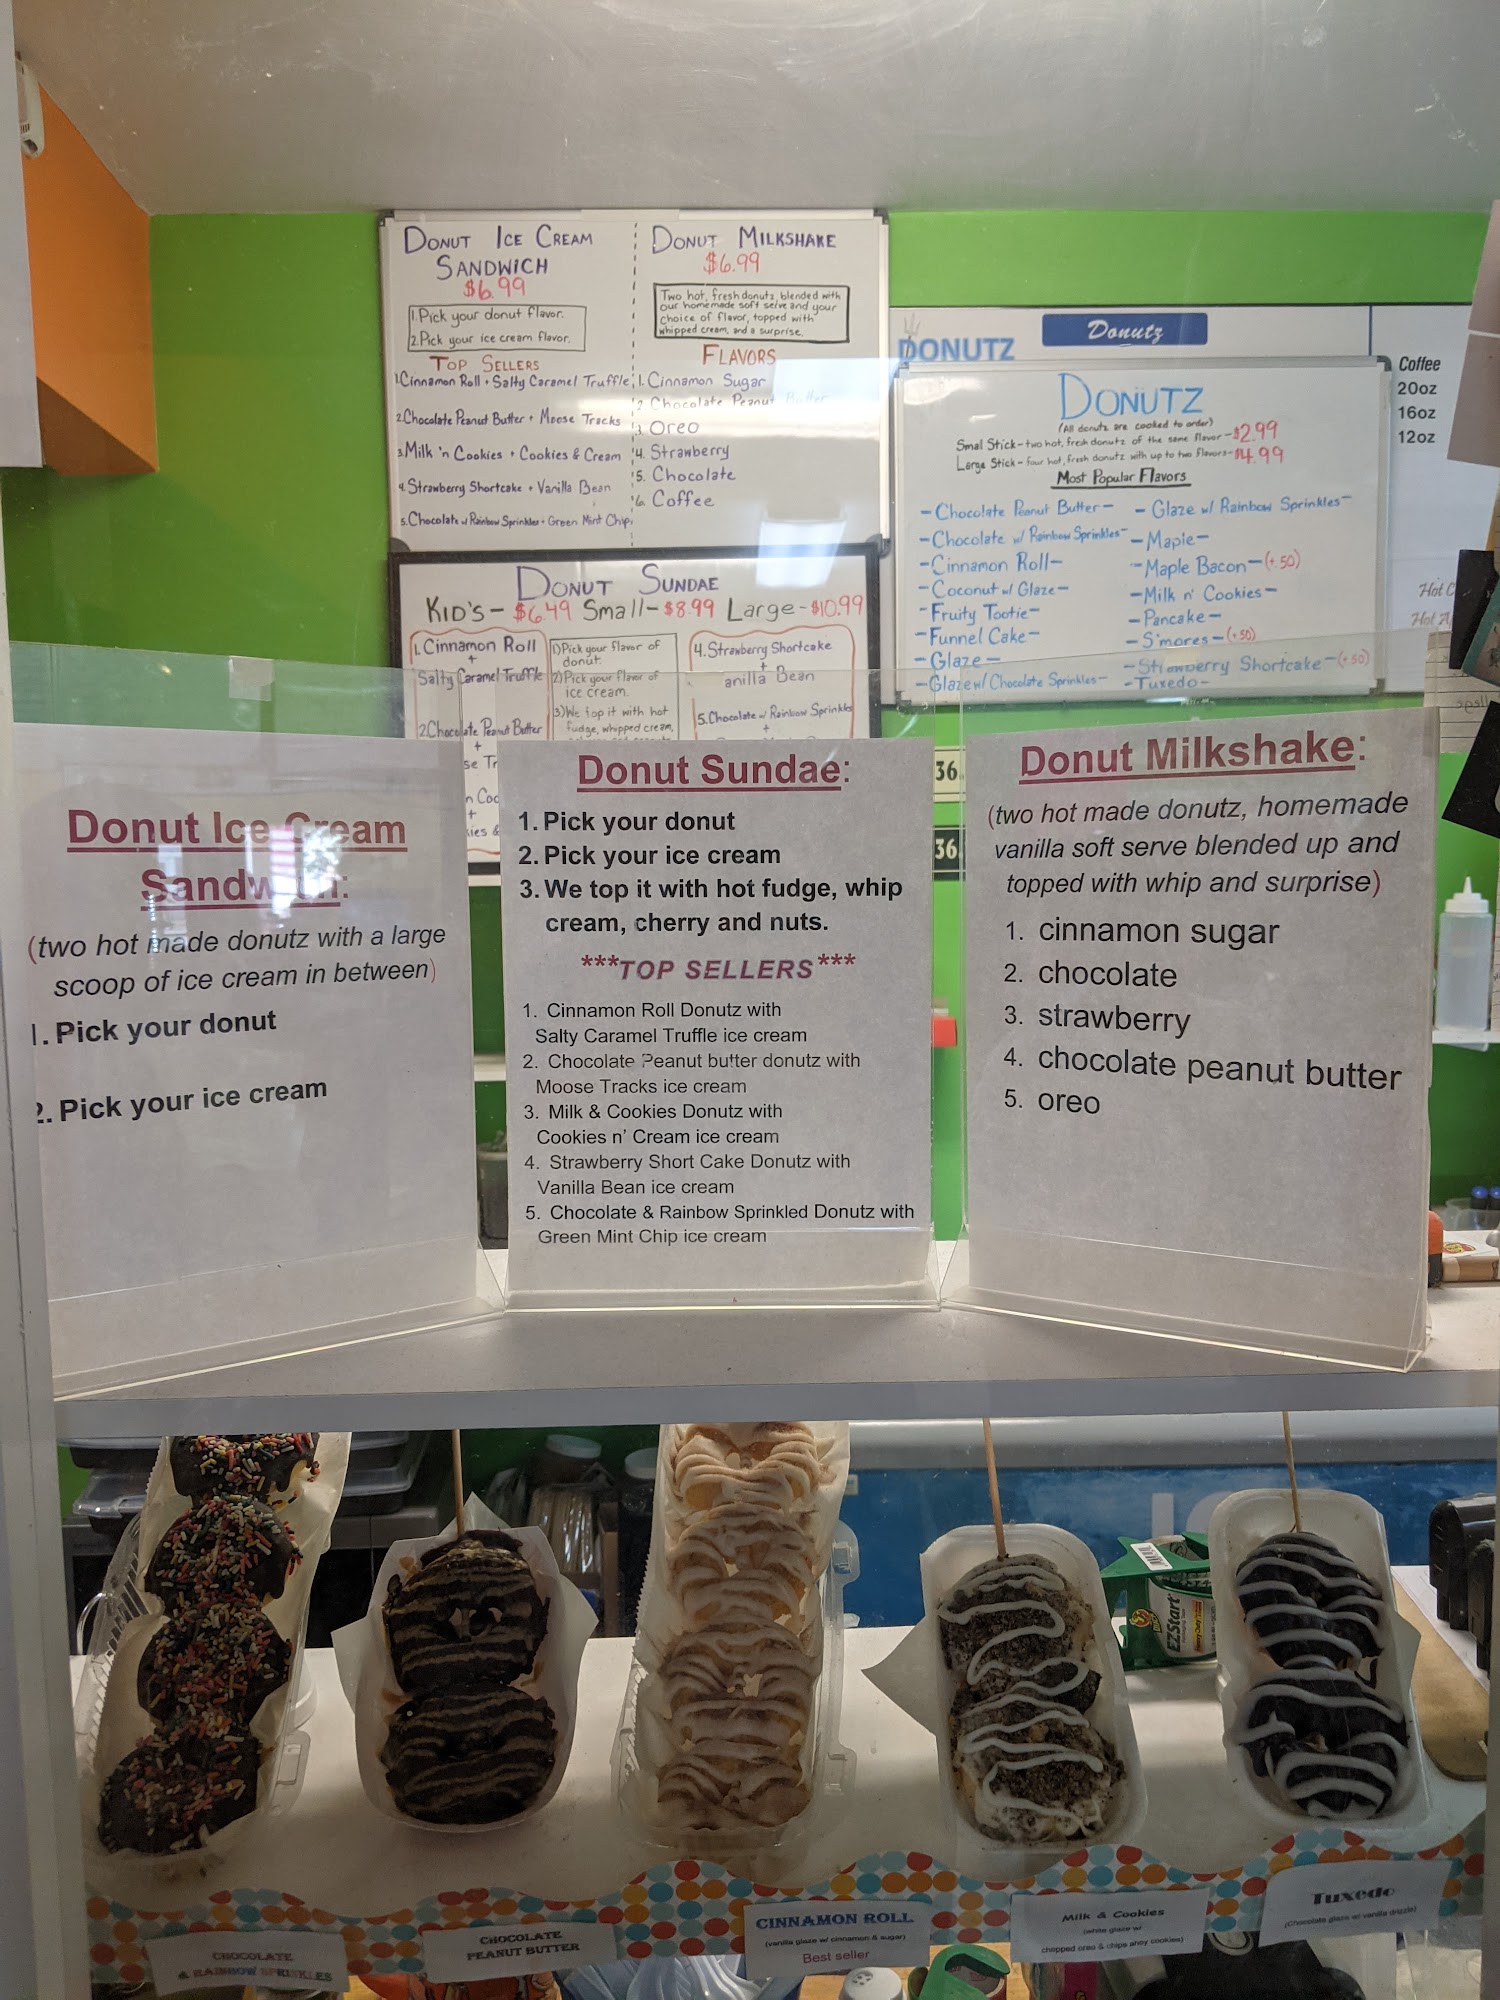 DONUT ICE CREAM
SANDWICH
$6.99
1. Pick your donut flavor.
2. Pick your ice cream flavor.
TOP SELLERS
1. Cinnamon Roll + Salty Caramel Truffle
2. Chocolate Peanut Butter + Moose Tracks
3. Milk 'n Cookies + Cookies & Cream
4. Strawberry Shortcake + Vanilla Bean
5. Chocolate w/ Rainbow Sprinkles + Green Mint Chip
DONUT MILKSHAKE
$6.99
Two hot, fresh donutz, blended with
our homemade soft serve and your
choice of flavor, topped with
whipped cream, and a surprise.
FLAVORS
1. Cinnamon Sugar
2. Chocolate Peanut Butter
3. Oreo
4. Strawberry
5. Chocolate
6. Coffee
DONUT SUNDAE
KID'S - $6.49 Small - $8.99 Large - $10.99
1. Cinnamon Roll
+
Salty Caramel Truffle
2. Chocolate Peanut Butter
+
se Tr
n Coo
+
ies &
1) Pick your flavor of
donut.
2) Pick your flavor of
ice cream.
3) We top it with hot
fudge, whipped cream,
4. Strawberry Shortcake
+
anilla Bean
5. Chocolate w/ Rainbow Sprinkles
+
DONUTZ
Donutz
DONUTZ
(All donutz are cooked to order)
Small Stick - two hot, fresh donutz of the same flavor - $2.99
Large Stick - four hot, fresh donutz with up to two flavors - $4.99
Most Popular Flavors
- Chocolate Peanut Butter -
- Chocolate w/ Rainbow Sprinkles -
- Cinnamon Roll -
- Coconut w/ Glaze -
- Fruity Tootie -
- Funnel Cake -
- Glaze -
- Glaze w/ Chocolate Sprinkles -
- Glaze w/ Rainbow Sprinkles -
- Maple -
- Maple Bacon - (+.50)
- Milk n' Cookies -
- Pancake -
- S'mores - (+.50)
- Strawberry Shortcake - (+.50)
- Tuxedo -
Coffee
20oz
16oz
12oz
Hot C
Hot A
36
36
Donut Ice Cream
Sandwich:
(two hot made donutz with a large
scoop of ice cream in between)
1. Pick your donut
2. Pick your ice cream
Donut Sundae:
1. Pick your donut
2. Pick your ice cream
3. We top it with hot fudge, whip
cream, cherry and nuts.
***TOP SELLERS***
1. Cinnamon Roll Donutz with
Salty Caramel Truffle ice cream
2. Chocolate Peanut butter donutz with
Moose Tracks ice cream
3. Milk & Cookies Donutz with
Cookies n' Cream ice cream
4. Strawberry Short Cake Donutz with
Vanilla Bean ice cream
5. Chocolate & Rainbow Sprinkled Donutz with
Green Mint Chip ice cream
Donut Milkshake:
(two hot made donutz, homemade
vanilla soft serve blended up and
topped with whip and surprise)
1. cinnamon sugar
2. chocolate
3. strawberry
4. chocolate peanut butter
5. oreo
EZStart
CHOCOLATE
& RAINBOW SPRINKLES
CHOCOLATE
PEANUT BUTTER
CINNAMON ROLL
(vanilla glaze w/ cinnamon & sugar)
Best seller
Milk & Cookies
(white glaze w/
chopped oreo & chips ahoy cookies)
Tuxedo
(Chocolate glaze w/ vanilla drizzle)